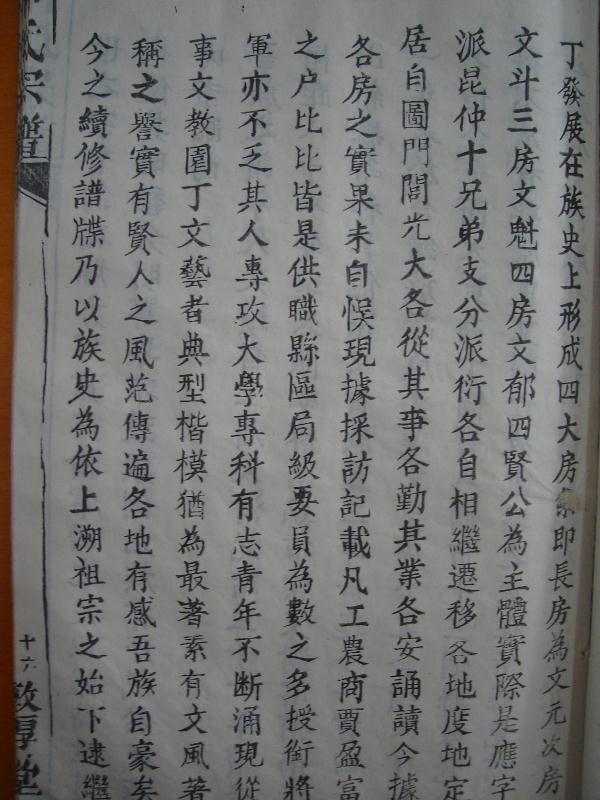 丁發展在族史上形成四大房系即長房為文元次房
文斗三房文魁四房文郁四賢公為主體實際是應字
派昆仲十兄弟支分派衍各自相繼遷移各地度地定
居自圖門閭光大各從其事各勤其業各安誦讀今據
各房之實果未自悮現據採訪記載凡工農商賈盈富
之户比比皆是供職縣區局級要員為數之多授銜將
軍亦不乏其人專攻大學專科有志青年不断涌現從
事文教園丁文藝者典型楷模猶為最著素有文風著
稱之譽實有賢人之風范傳遍各地有感吾族自豪矣
今之續修譜牒乃以族史為依上溯祖宗之始下逮繼
氏宗譜
十六
敦厚堂